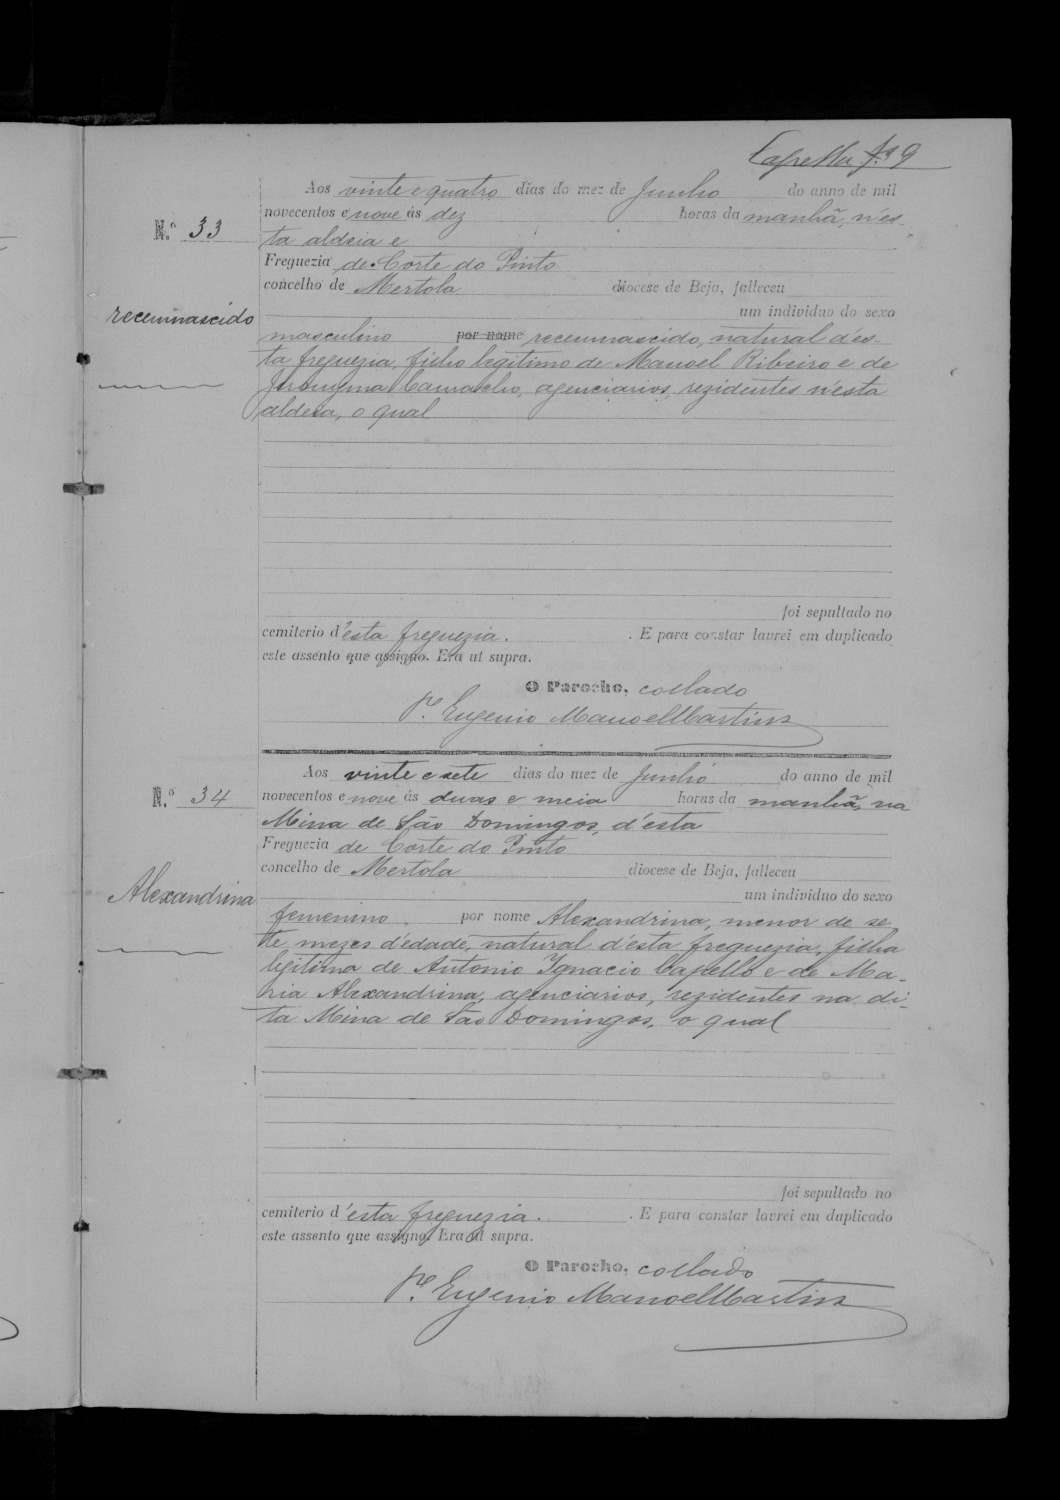 Capella fs 9
Aos vinte e quatro dias do mez de Junho do anno de mil
novecentos e nove ás dez horas da manhã, n'es-
ta aldeia e
Freguezia de Corte do Pinto
concelho de Mertola diocese de Beja, falleceu
um individuo do sexo
masculino por nome recemnascido, natural d'es-
ta freguezia, filho legitimo de Manoel Ribeiro e de
Jeronyma Camacho, agenciarios, rezidentes n'esta
aldeia, o qual
foi sepultado no
cemiterio d'esta freguezia. E para constar lavrei em duplicado
este assento que assigno. Era ut supra.
O Parocho, collado
P.e Eugenio Manoel Martins
N.º 33
recemnascido
Aos vinte e sete dias do mez de Junho do anno de mil
novecentos e nove ás duas e meia horas da manhã, na
Mina de São Domingos, d'esta
Freguezia de Corte do Pinto
concelho de Mertola diocese de Beja, falleceu
um individuo do sexo
femenino. por nome Alexandrina, menor de se
te mezes d'edade, natural d'esta freguezia, filha
legitima de Antonio Ignacio Capello e de Ma-
ria Alexandrina, agenciarios, rezidentes na di-
ta Mina de São Domingos, o qual
foi sepultado no
cemiterio d'esta freguezia. E para constar lavrei em duplicado
este assento que assigno. Era ut supra.
O Parocho, collado
P.e Eugenio Manoel Martins
N.º 34
Alexandrina